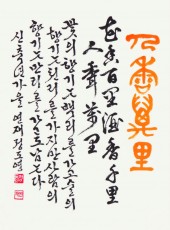 人香萬里
花香百里酒香千里
人香萬里
꽃의 향기는 백리를 가고 술의
향기는 천리를 가지만 사람의
향기는 만리를 가고도 남는다
신축년 가을